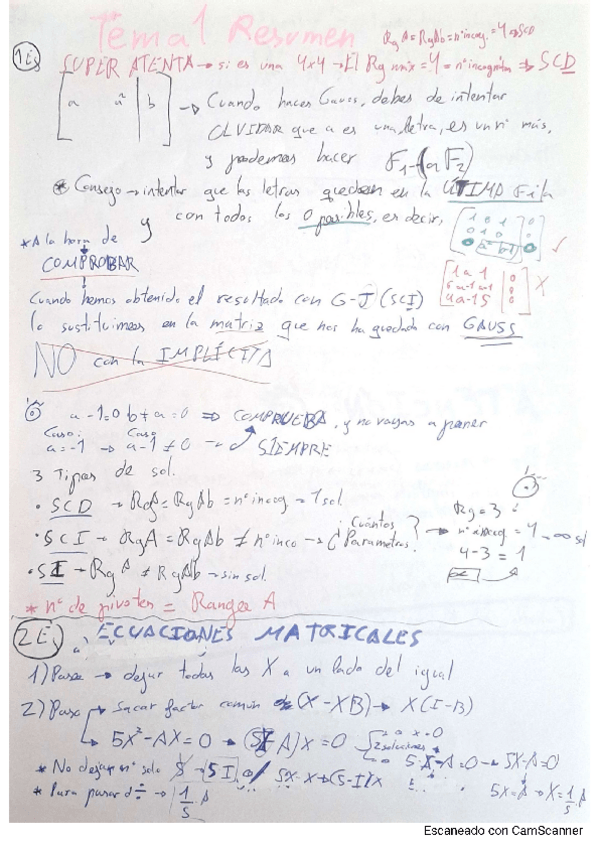 Tema 1 Resumen
RgA=RgAb=nºincog.=4⇒SCD
1Ej
SUPER ATENTA→ si es una 4x4→El Rg máx=4=nºincognitas⇒SCD
a a² b → Cuando haces Gauss, debes de intentar
OLVIDAR que a es una letra, es un nº más,
y podemos hacer F1-(a F2)
* Consejo→intentar que las letras queden en la ÚLTIMA Fila
y con todos los 0 posibles, es decir,
1 0 1 0
0 1 0 0
0 a² b-1 0 ✓
*A la hora de
COMPROBAR
1 a 1 0
a-1 0
4a-15 0 X
Cuando hemos obtenido el resultado con G-J (SCI)
lo sustituimos en la matriz que nos ha quedado con GAUSS
NO con la IMPLÍCITA
a-1=0 b+a=0 ⇒ COMPRUEBA, y no vayas a poner
Caso: Caso
a=-1 → a-1≠0 → SIEMPRE
3 Tipos de sol.
• SCD → RgA=RgAb=nºincog→1sol
• SCI → RgA=RgAb≠nºinco→¿Cuántos Parametros?
→ Rg=3
nºincog=4→∞ sol
4-3=1
• SI → RgA≠RgAb→sin sol.
* nº de pivotes = Rango A
2Ej ECUACIONES MATRICALES
1) Paso → dejar todas las X a un lado del igual
2) Paso → Sacar factor común (X-XB)→ X(I-B)
→ 5X²-AX=0 → (5X-A)X=0
x=0
2 soluciones
5·X-A=0→5X-A=0
* No dejar nº solo 5→5I
5X=A→X=1/5 A
* Para pasar d ÷ → 1/5 A
Escaneado con CamScanner